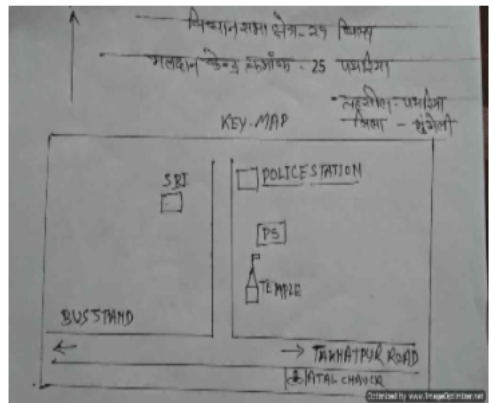 विधानसभा क्षेत्र - 29 बिल्हा
मतदान केन्द्र क्रमांक - 25 पथरिया
तहसील - पथरिया
जिला - मुंगेली
KEY-MAP
SBI
POLICE STATION
PS
TEMPLE
BUS STAND
TAKHATPUR ROAD
ATAL CHAWK
Optimized by www.ImageOptimizer.net